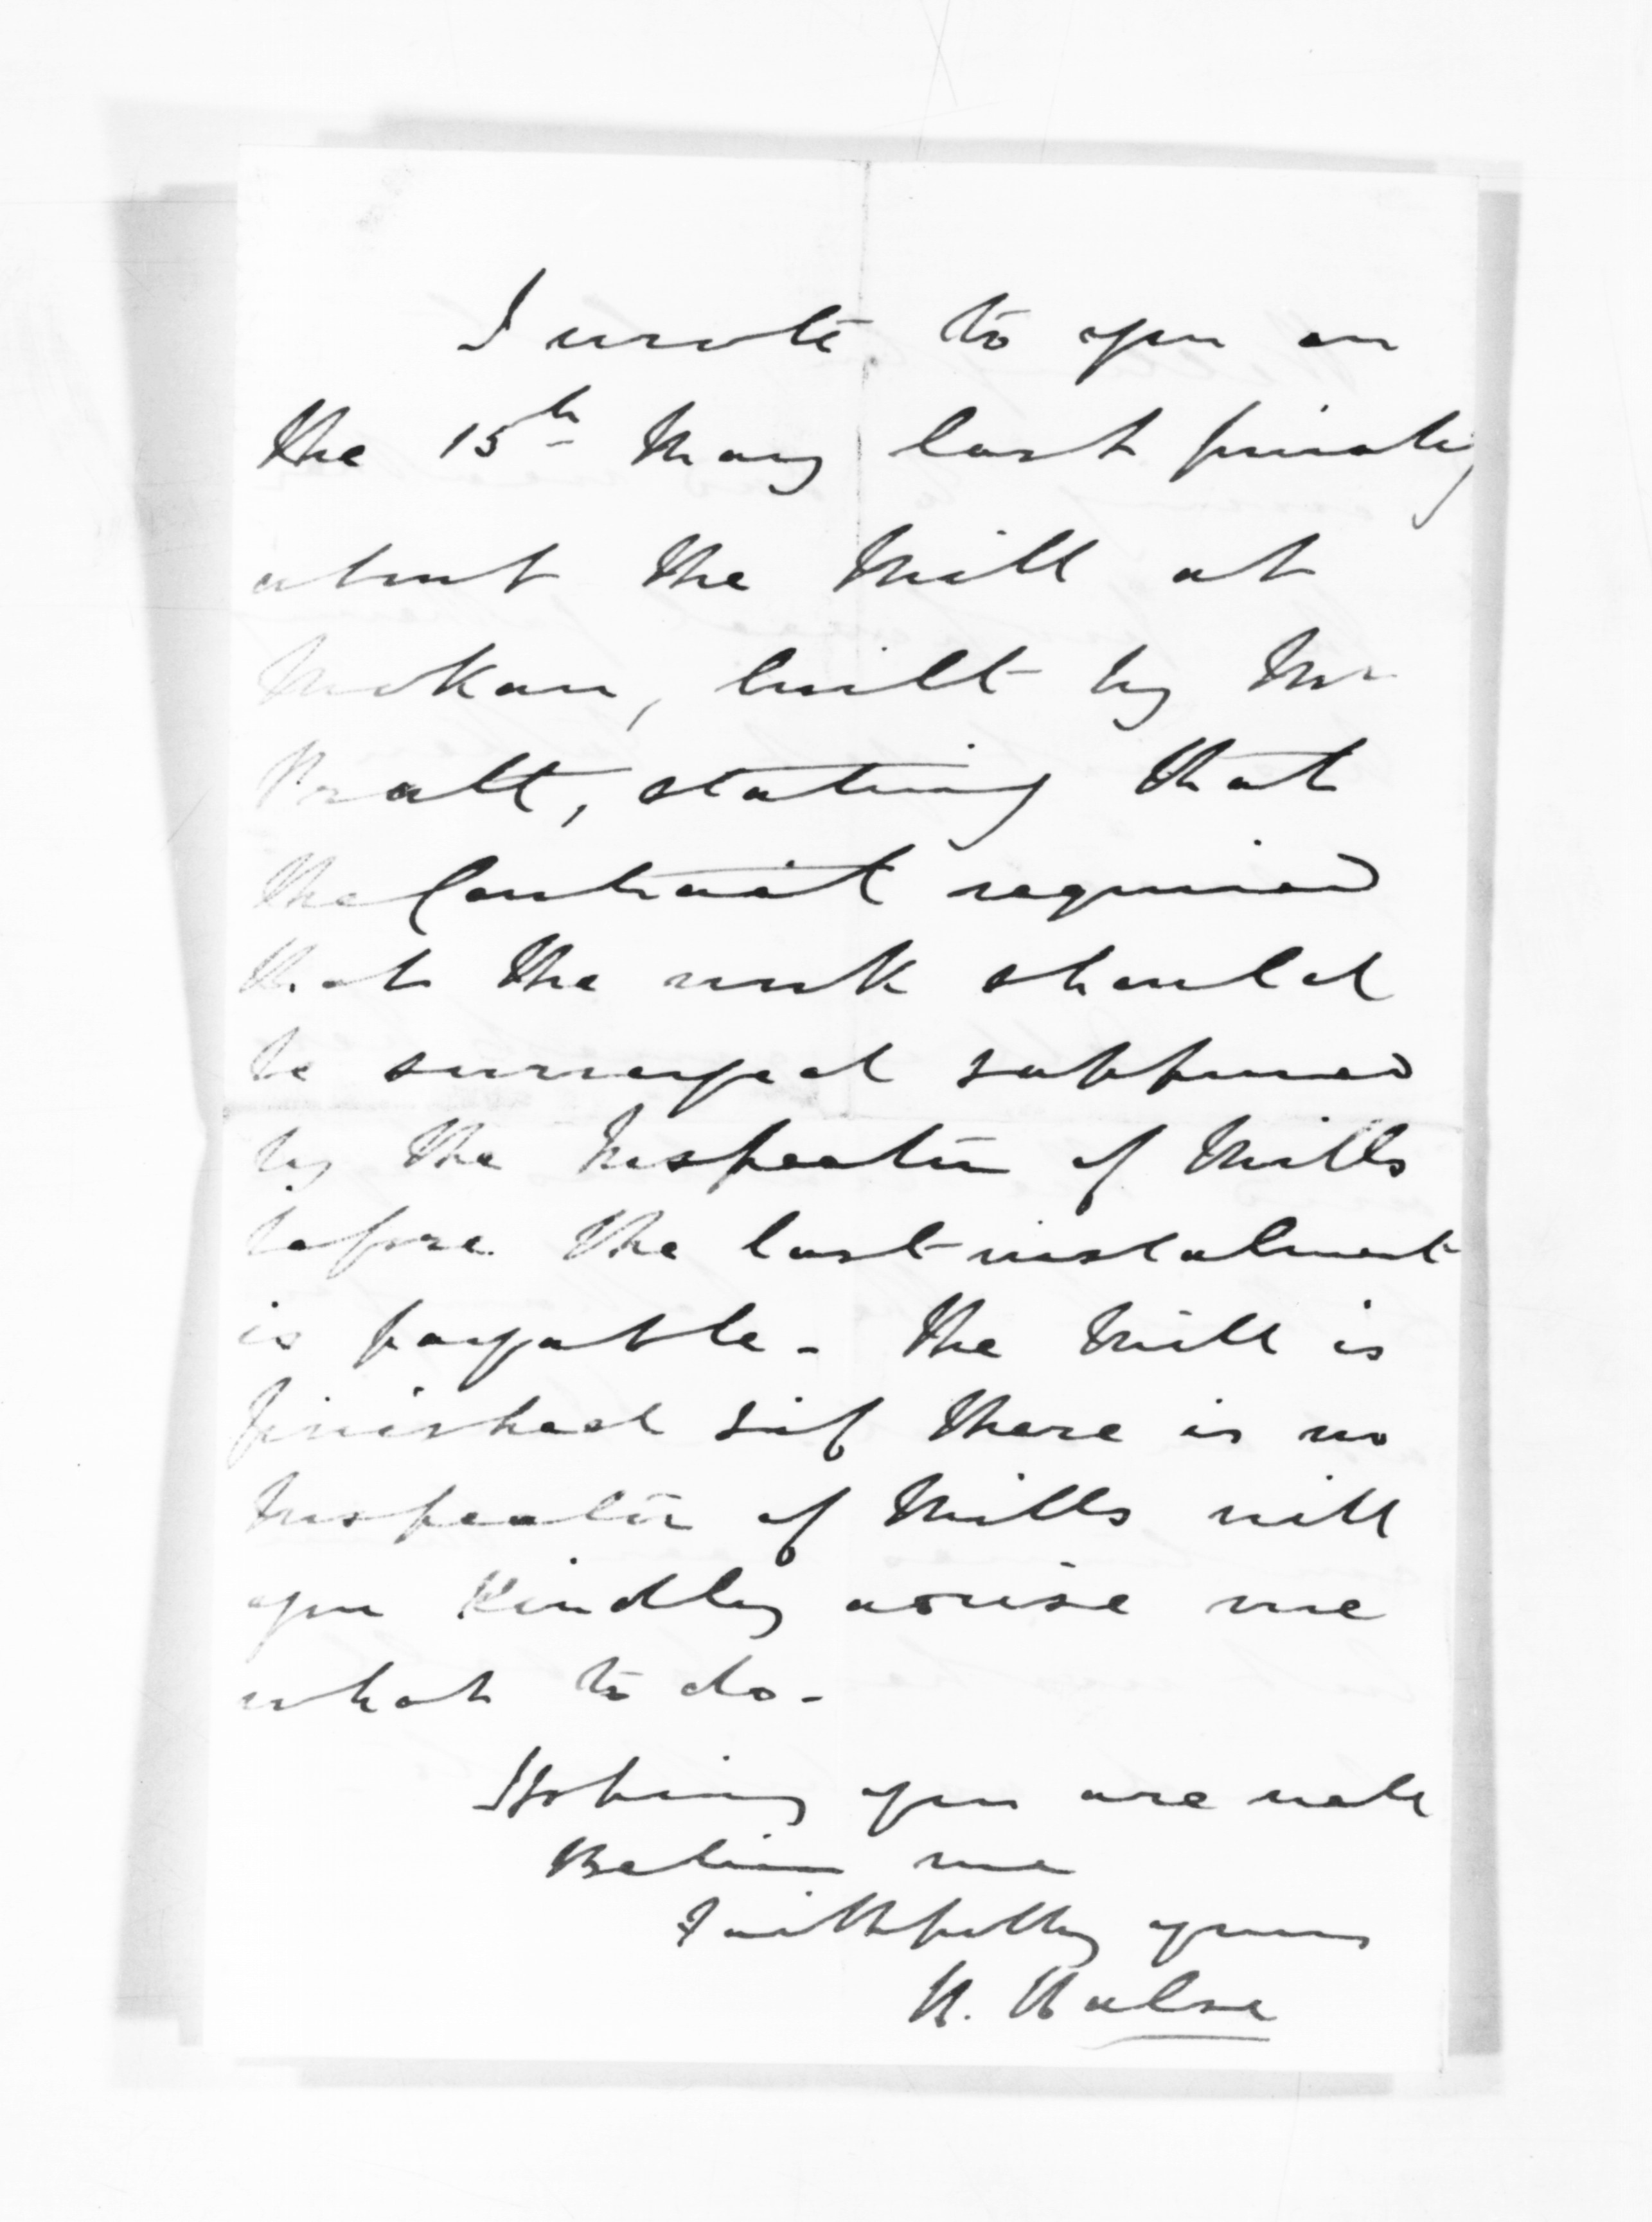 I wrote to you on
the 15th May last privately
about the Mill at
Mokau, built by Mr
Pratt, stating that
the Contract required
that the work should
be surveyed & approved
by the Inspector of Mills
before the last instalment
is payable. The Mill is
finished & if there is no
Inspector of Mills will
you kindly advise me
what to do.
Hoping you are well
Believe me
Faithfully yours
H. Halse